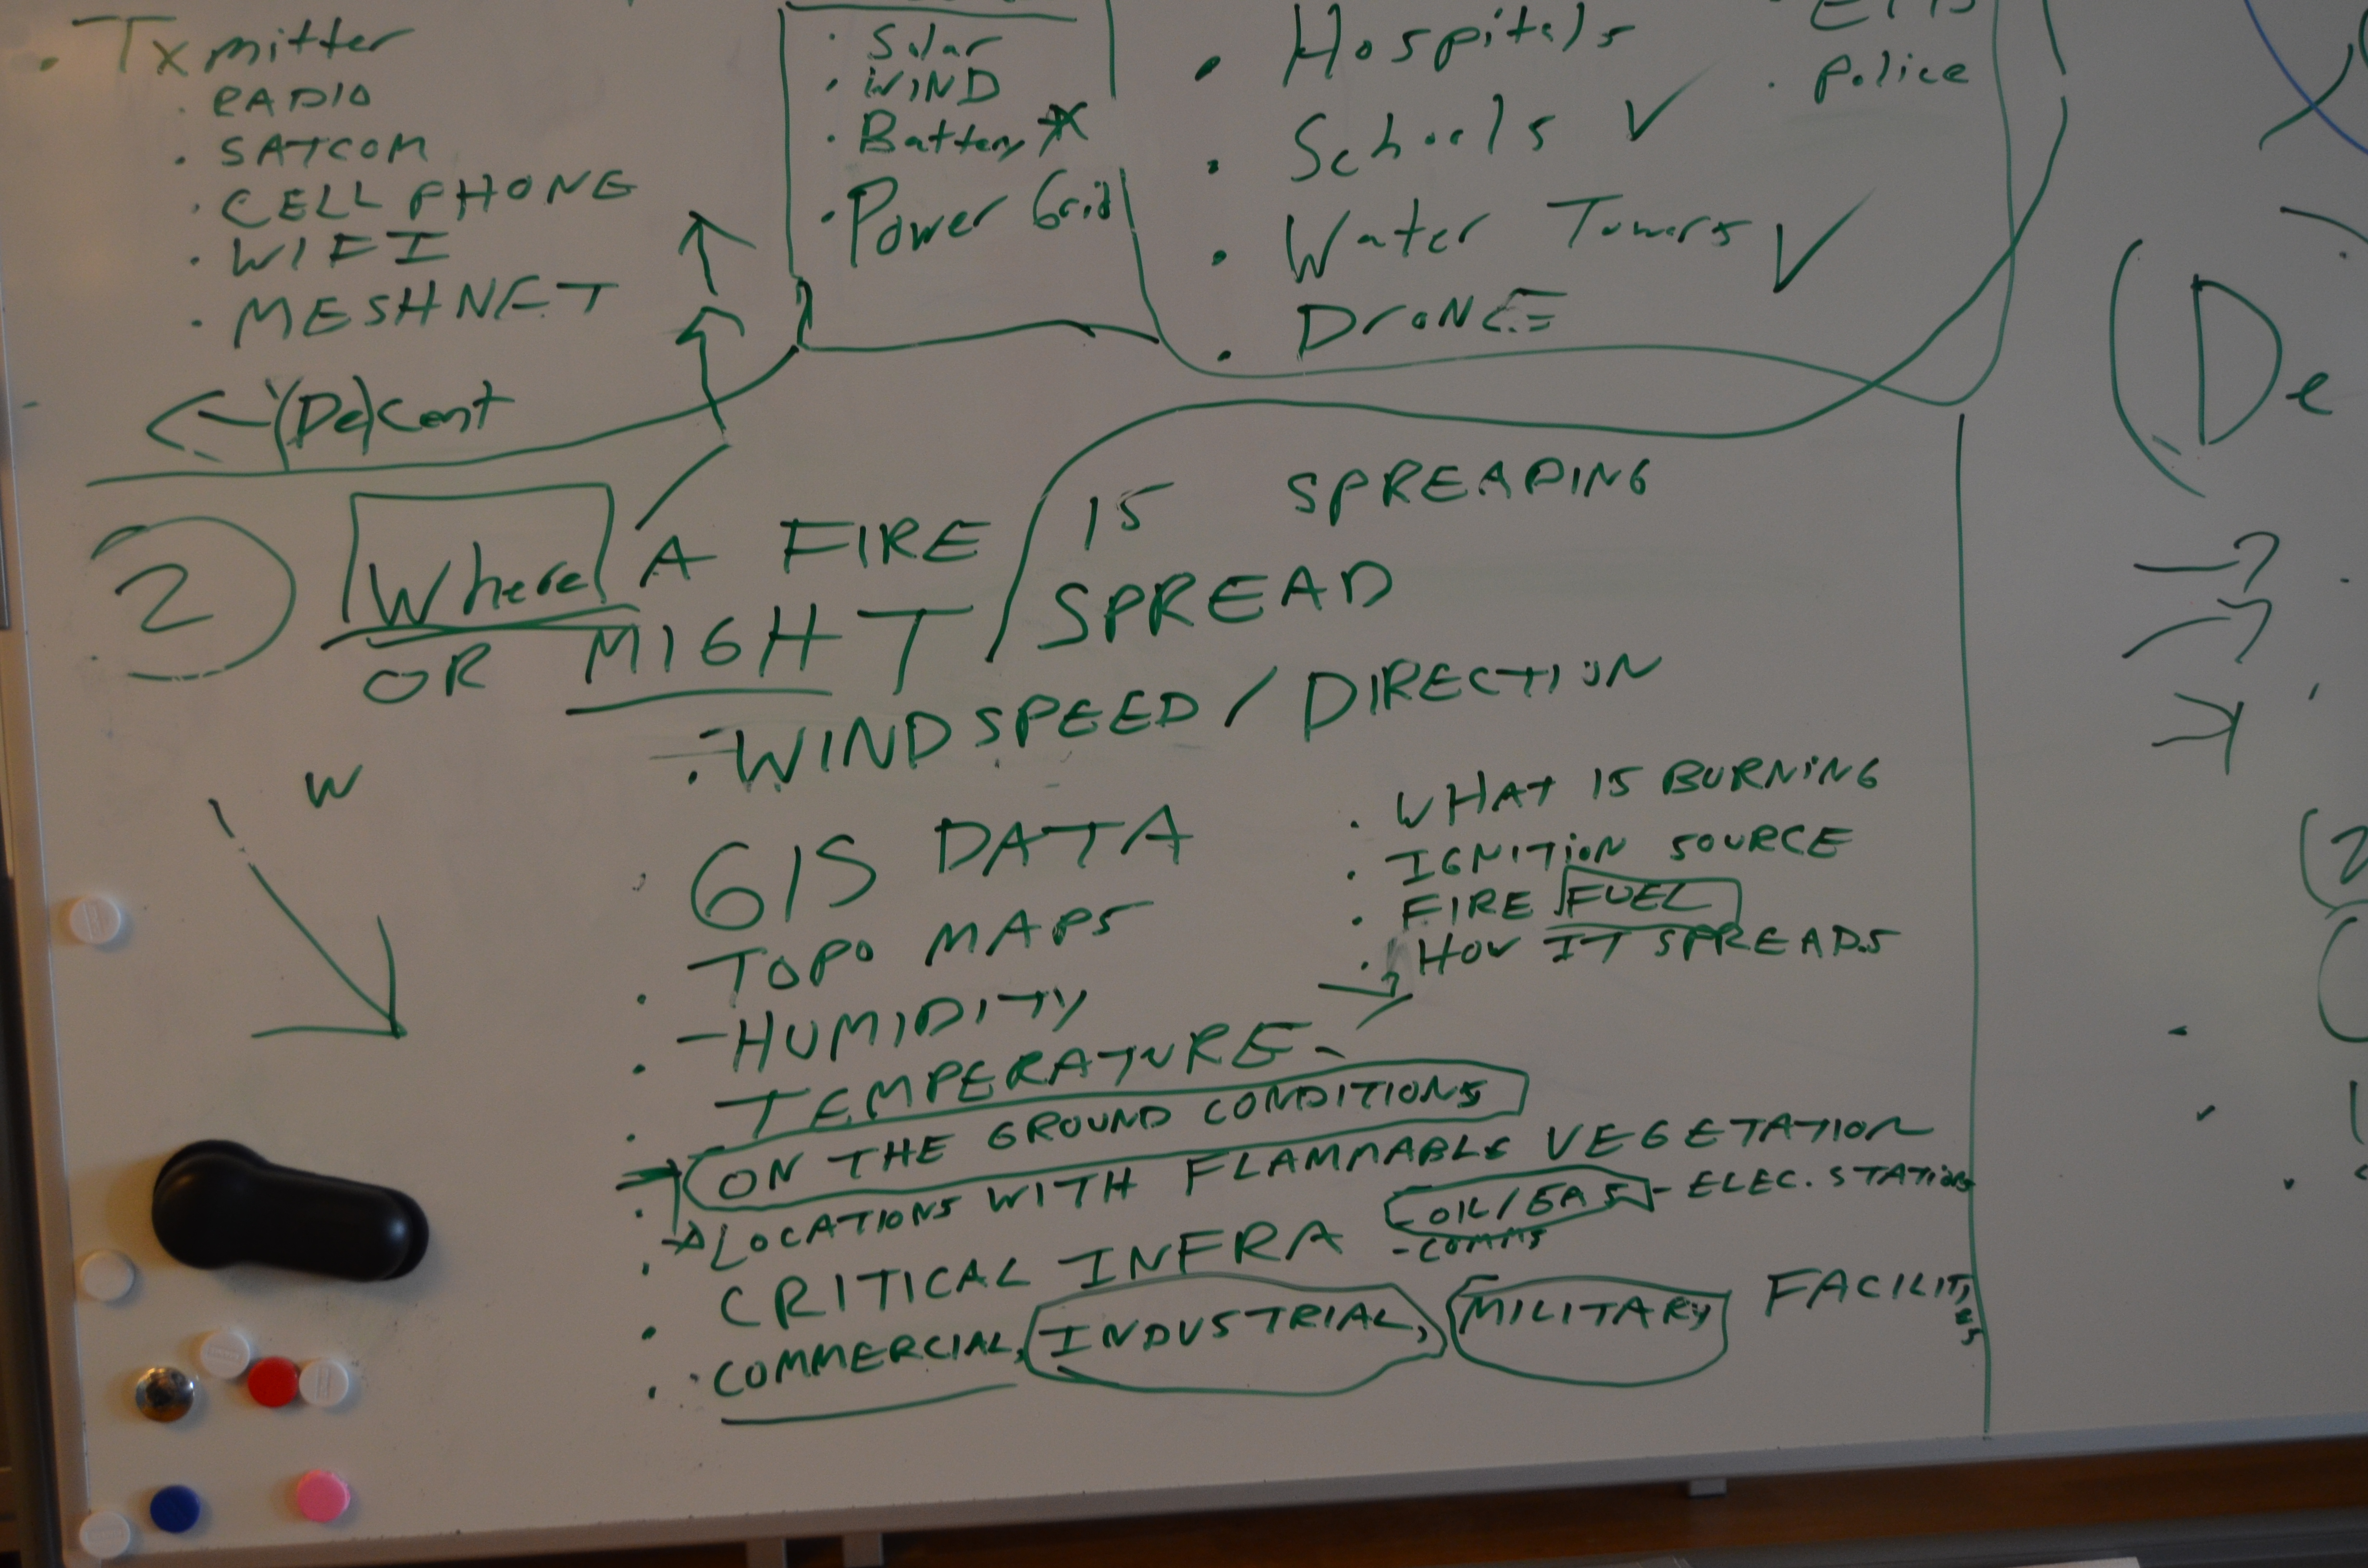 · Txmitter
· RADIO
· SATCOM
· CELL PHONE
· WIFI
· MESHNET
(De)Cent
· Solar
· WIND
· Battery *
· Power Grid
· Hospitals
· Schools ✓
· Water Towers ✓
· DRONE
· Police
2 Where A FIRE IS SPREADING
OR MIGHT SPREAD
W
· WINDSPEED / DIRECTION
· GIS DATA
· TOPO MAPS
· HUMIDITY
· TEMPERATURE
· ON THE GROUND CONDITIONS
· LOCATIONS WITH FLAMMABLE VEGETATION
· CRITICAL INFRA OIL/GAS - ELEC. STATIONS
- COMMS
· COMMERCIAL, INDUSTRIAL, MILITARY FACILITIES
· WHAT IS BURNING
· IGNITION SOURCE
· FIRE FUEL
· HOW IT SPREADS
(De